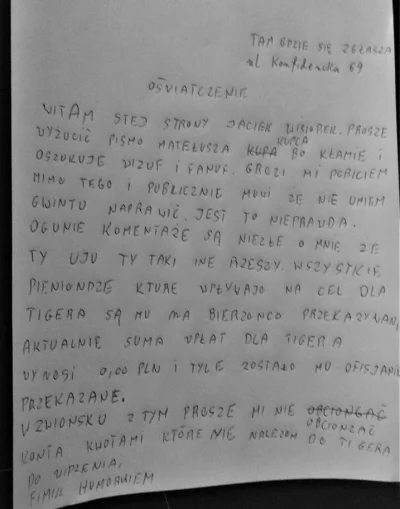 TAM GDZIE SIĘ ZGŁASZA
ul. Konfidencka 69
OŚVIATCZENIE
VITAM STEJ STRONY JACIEK WISIOREK. PROSZE
VYŻUCIĆ PISMO MATEŁUSZA KUPCA BO KŁAMIE I
OSZUKUJE VIZUF I FANUF. GROZI MI POBICIEM
MIMO TEGO I PUBLICZNIE MUVI ŻE NIE UMIEM
GWINTU NAPRAVIĆ. JEST TO NIEPRAVDA.
OGUNIE KOMENTAŻE SĄ NIEZŁE O MNIE ŻE
TY UJU TY TAKI INE RZESZY. WSZYSTKIE
PIENIONDZE KTURE VPŁYVAJO NA CEL DLA
TIGERA SĄ MU NA BIERZONCO PRZEKAZYVAN
AKTUALNIE SUMA VPŁAT DLA TIGERA
VYNOSI 0,00 PLN I TYLE ZOSTAŁO MU OFISJANIE
PRZEKAZANE.
VZVIONSKU Z TYM PROSZE MI NIE OPCIONGAĆ OPCIONZAĆ
KONTA KVOTAMI KTÓRE NIE NALEZOM DO TIGERA
DO VIDZENIA,
FIMIK HUMORWIEM